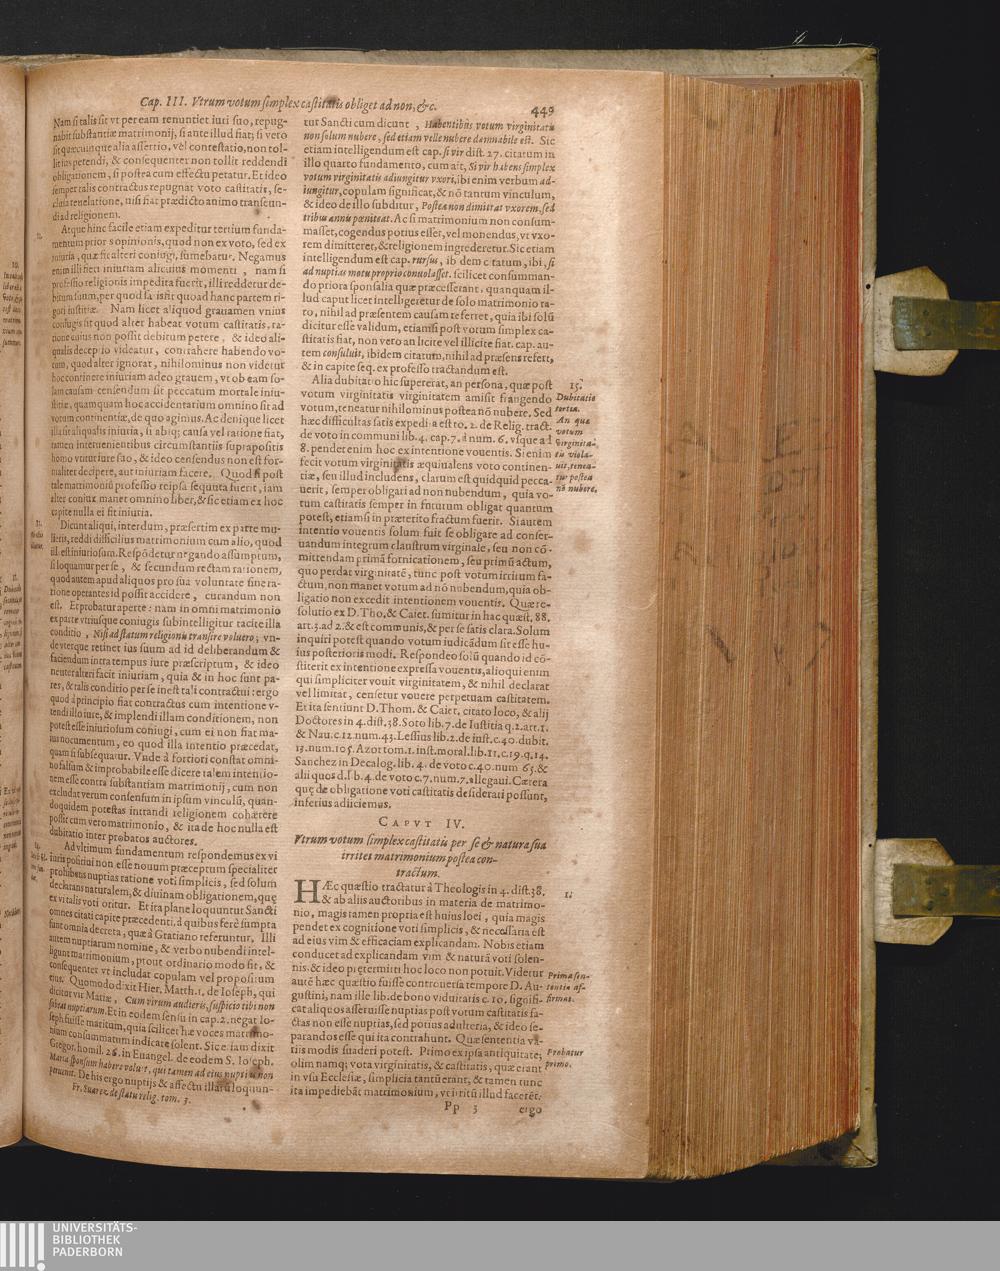 Cap. III. Vtrum votum simplex castitatis obliget ad non, &c. 449
Nam si talis sit vt per eam renuntiet iuri suo, repug-
nabit substantiæ matrimonij, si ante illud fiat; si vero
sit quæcunque alia assertio, vel contestatio, non tol-
lit ius petendi, & consequenter non tollit reddendi
obligationem, si postea cum effectu petatur. Et ideo
semper talis contractus repugnat voto castitatis, se-
clusa reuelatione, nisi fiat prædicto animo transeun-
di ad religionem.
Atque hinc facile etiam expeditur tertium funda-
mentum prioris opinionis, quod non ex voto, sed ex
iniuria, quæ fit alteri coniugi, sumebatur. Negamus
enim illi fieri iniuriam alicuius momenti, nam si
professio religionis impedita fuerit, illi redditur de-
bitum suum, per quod satisfit quoad hanc partem ri-
gori iustitiæ. Nam licet aliquod grauamen vnius
coniugis sit quod alter habeat votum castitatis, ra-
tione cuius non possit debitum petere, & ideo ali-
qualis deceptio videatur, contrahere habendo vo-
tum, quod alter ignorat, nihilominus non videtur
hoc continere iniuriam adeo grauem, vt ob eam so-
lam causam censendum sit peccatum mortale iniu-
stitiæ, quamquam hoc accidentarium omnino sit ad
votum continentiæ, de quo agimus. Ac denique licet
illa sit aliqualis iniuria, si absq; causa vel ratione fiat,
tamen interuenientibus circumstantiis suprapositis
homo vtitur iure suo, & ideo censendus non est for-
maliter decipere, aut iniuriam facere. Quod si post
tale matrimonium professio reipsa sequuta fuerit, iam
alter coniux manet omnino liber, & sic etiam ex hoc
capite nulla ei fit iniuria.
Dicunt aliqui, interdum, præsertim ex parte mu-
lieris, reddi difficilius matrimonium cum alio, quod
illi est iniuriosum. Respõdetur negando assumptum,
si loquamur per se, & secundum rectam rationem,
quod autem apud aliquos pro sua voluntate sine ra-
tione operantes id possit accidere, curandum non
est. Et probatur aperte: nam in omni matrimonio
ex parte vtriusque coniugis subintelligitur tacite illa
conditio, Nisi ad statum religionis transire voluero; vn-
de vterque retinet ius suum ad id deliberandum &
faciendum intra tempus iure præscriptum, & ideo
neuter alteri facit iniuriam, quia & in hoc sunt pa-
res, & talis conditio per se inest tali contractui: ergo
quod à principio fiat contractus cum intentione v-
tendi illo iure, & implendi illam conditionem, non
potest esse iniuriosum coniugi, cum ei non fiat ma-
ius nocumentum, eo quod illa intentio præcedat,
quam si subsequatur. Vnde à fortiori constat omni-
no falsum & improbabile esse dicere talem intentio-
nem esse contra substantiam matrimonij, cum non
excludat verum consensum in ipsum vinculũ, quan-
doquidem potestas intrandi religionem cohærere
possit cum vero matrimonio, & ita de hoc nulla est
dubitatio inter probatos auctores.
Ad vltimum fundamentum respondemus ex vi
iuris positiui non esse nouum præceptum specialiter
prohibens nuptias ratione voti simplicis, sed solum
declarans naturalem, & diuinam obligationem, quę
ex vi talis voti oritur. Et ita plane loquuntur Sancti
omnes citati capite præcedenti, à quibus ferè sumpta
sunt omnia decreta, quæ à Gratiano referuntur. Illi
autem nuptiarum nomine, & verbo nubendi intel-
ligunt matrimonium, prout ordinario modo fit, &
consequenter vt includat copulam vel propositum
eius. Quomodo dixit Hier. Matth. 1. de Ioseph, qui
dicitur vir Mariæ, Cum virum audieris, suspicio tibi non
subeat nuptiarum. Et in eodem sensu in cap. 2. negat Io-
seph fuisse maritum, quia scilicet hæ voces matrimo-
nium consummatum indicate solent. Sic etiam dixit
Gregor. homil. 26. in Euangel. de eodem S. Ioseph.
Maria sponsum habere voluit, qui tamen ad eius nuptias non
peruenit. De his ergo nuptijs & affectu illarũ loquun-
Fr. Suarez de statu relig. tom. 3.
tur Sancti cum dicunt, Habentibus votum virginitatis
non solum nubere, sed etiam velle nubere damnabile est. Sic
etiam intelligendum est cap. si vir dist. 27. citatum in
illo quarto fundamento, cum ait, Si vir habens simplex
votum virginitatis adiungitur vxori, ibi enim verbum ad-
iungitur, copulam significat, & nõ tantum vinculum,
& ideo de illo subditur, Postea non dimittat vxorem, sed
tribus annis pœniteat. Ac si matrimonium non consum-
masset, cogendus potius esset, vel monendus, vt vxo-
rem dimitteret, & religionem ingrederetur. Sic etiam
intelligendum est cap. rursus, ibidem citatum, ibi, si
ad nuptias motu proprio conuolasset. scilicet consumman-
do priora sponsalia quæ præcesserant. quanquam il-
lud caput licet intelligeretur de solo matrimonio ra-
to, nihil ad præsentem causam referret, quia ibi solũ
dicitur esse validum, etiamsi post votum simplex ca-
stitatis fiat, non vero an licite vel illicite fiat. cap. au-
tem consuluit, ibidem citatum, nihil ad præsens refert,
& in capite seq. ex professo tractandum est.
Alia dubitatio hic supererat, an persona, quæ post
votum virginitatis virginitatem amisit frangendo
votum, teneatur nihilominus postea nõ nubere. Sed
hæc difficultas satis expedita est to. 2. de Relig. tract.
de voto in communi lib. 4. cap. 7. à num. 6. vsque ad
8. pendere nim hoc ex intentione vouentis. Si enim
fecit votum virginitatis æquiualens voto continen-
tiæ, seu illud includens, clarum est quidquid pecca-
uerit, semper obligari ad non nubendum, quia vo-
tum castitatis semper in futurum obligat quantum
potest, etiamsi in præterito fractum fuerit. Si autem
intentio vouentis solum fuit se obligare ad conser-
uandum integrum claustrum virginale, seu non cõ-
mittendam primã fornicationem, seu primũ actum,
quo perdat virginitatẽ, tunc post votum irritum fa-
ctum, non manet votum ad nõ nubendum, quia ob-
ligatio non excedit intentionem vouentis. Quæ re-
solutio ex D. Tho. & Caiet. sumitur in hac quæst. 88.
art. 3. ad 2. & est communis, & per se satis clara. Solum
inquiri potest quando votum iudicãdum sit esse hu-
ius posterioris modi. Respondeo solũ quando id cõ-
stiterit ex intentione expressa vouentis, alioqui enim
qui simpliciter vouit virginitatem, & nihil declarat
vel limitat, censetur vouere perpetuam castitatem.
Et ita sentiunt D. Thom. & Caiet. citato loco, & alij
Doctores in 4. dist. 38. Soto lib. 7. de Iustitia q. 2. art. 1.
& Nau. c. 12. num. 43. Lessius lib. 2. de iust. c. 40. dubit.
13. num. 105. Azor tom. 1. inst. moral. lib. 11. c. 19. q. 14.
Sanchez in Decalog. lib. 4. de voto c. 40. num 63. &
alii quos d. lib. 4. de voto c. 7. num. 7. allegaui. Cætera
quę de obligatione voti castitatis desiderari possunt,
inferius adiiciemus.
CAPVT IV.
Vtrum votum simplex castitatis per se & natura sua
irritet matrimonium postea con-
tractum.
HÆc quæstio tractatur à Theologis in 4. dist. 38.
& ab aliis auctoribus in materia de matrimo-
nio, magis tamen propria est huius loci, quia magis
pendet ex cognitione voti simplicis, & necessaria est
ad eius vim & efficaciam explicandam. Nobis etiam
conducet ad explicandam vim & naturã voti solen-
nis, & ideo prętermitti hoc loco non potuit. Videtur
autẽ hæc quæstio fuisse controuersa tempore D. Au-
gustini, nam ille lib. de bono viduitatis c. 10. signifi-
cat aliquos asseruisse nuptias post votum castitatis fa-
ctas non esse nuptias, sed potius adulteria, & ideo se-
parandos esse qui ita contrahunt. Quæ sententia va-
riis modis suaderi potest. Primo ex ipsa antiquitate;
olim namq; vota virginitatis, & castitatis, quæ erant
in vsu Ecclesiæ, simplicia tantũ erant, & tamen tunc
ita impediebãt matrimonium, vt irritũ illud facerẽt.
Pp 3 ergo
15.
Dubitatio
tertia.
An quæ
votum
virginita-
tis viola-
uit, tenea-
tur postea
nõ nubere.
1.
Prima sen-
tentia af-
firmat.
Probatur
primo.
UNIVERSITÄTS-
BIBLIOTHEK
PADERBORN